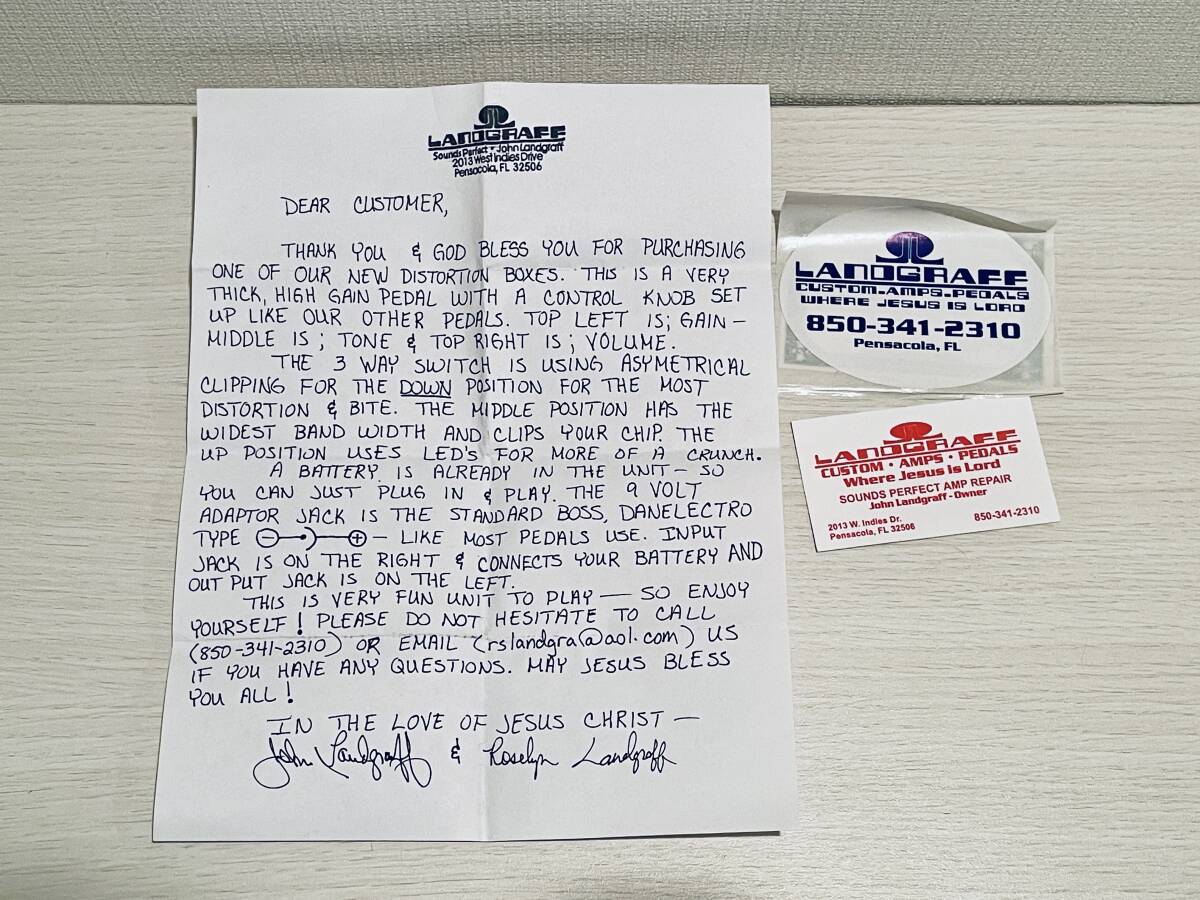 LANDGRAFF
Sounds Perfect • John Landgraff
2013 West Indies Drive
Pensacola, FL 32506
DEAR CUSTOMER,
THANK YOU & GOD BLESS YOU FOR PURCHASING
ONE OF OUR NEW DISTORTION BOXES. THIS IS A VERY
THICK, HIGH GAIN PEDAL WITH A CONTROL KNOB SET
UP LIKE OUR OTHER PEDALS. TOP LEFT IS; GAIN –
MIDDLE IS; TONE & TOP RIGHT IS; VOLUME.
THE 3 WAY SWITCH IS USING ASYMETRICAL
CLIPPING FOR THE DOWN POSITION FOR THE MOST
DISTORTION & BITE. THE MIDDLE POSITION HAS THE
WIDEST BAND WIDTH AND CLIPS YOUR CHIP. THE
UP POSITION USES LED'S FOR MORE OF A CRUNCH.
A BATTERY IS ALREADY IN THE UNIT – SO
YOU CAN JUST PLUG IN & PLAY. THE 9 VOLT
ADAPTOR JACK IS THE STANDARD BOSS, DANELECTRO
TYPE – + – LIKE MOST PEDALS USE. INPUT
JACK IS ON THE RIGHT & CONNECTS YOUR BATTERY AND
OUT PUT JACK IS ON THE LEFT.
THIS IS VERY FUN UNIT TO PLAY — SO ENJOY
YOURSELF! PLEASE DO NOT HESITATE TO CALL
(850-341-2310) OR EMAIL (rslandgra@aol.com) US
IF YOU HAVE ANY QUESTIONS. MAY JESUS BLESS
YOU ALL!
IN THE LOVE OF JESUS CHRIST —
John Landgraff & Roselyn Landgraff
LANDGRAFF
CUSTOM-AMPS-PEDALS
WHERE JESUS IS LORD
850-341-2310
Pensacola, FL
LANDGRAFF
CUSTOM • AMPS • PEDALS
Where Jesus is Lord
SOUNDS PERFECT AMP REPAIR
John Landgraff - Owner
2013 W. Indies Dr. 850-341-2310
Pensacola, FL 32506